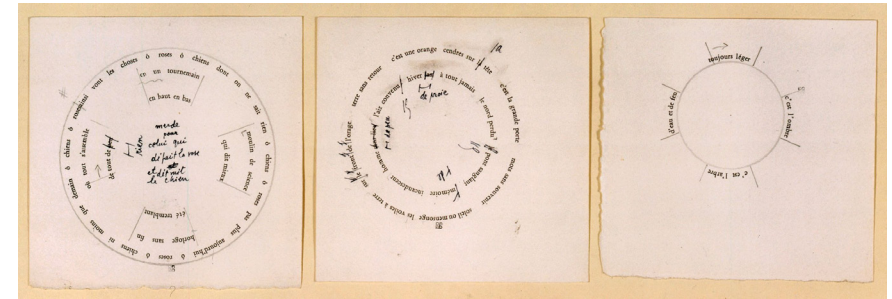 vont les choses ô roses ô chiens dont on ne sait rien ô chiens ô roses pas plus aujourd'hui ô roses ô chiens ni moins que demain ô chiens ô romains
en un tournemain
en haut en bas
moulin de science
qui dit mieux
été tremblant
horloge sans fin
où tout s'assemble
de tout de
rien
merde
pour
celui qui
défait la rose
et dit mot
le chien
c'est une orange cendres sur tête c'est la grande porte mots sans souvenir soleil en mensonge les voiles à terre sur terre sans retour
hiver à tout jamais le nord perdu? peine sanglant mémoire incandescent homme l'air convenu
de proie
de peu
toujours léger
c'est l'ombre
c'est l'arbre
d'eau et de feu